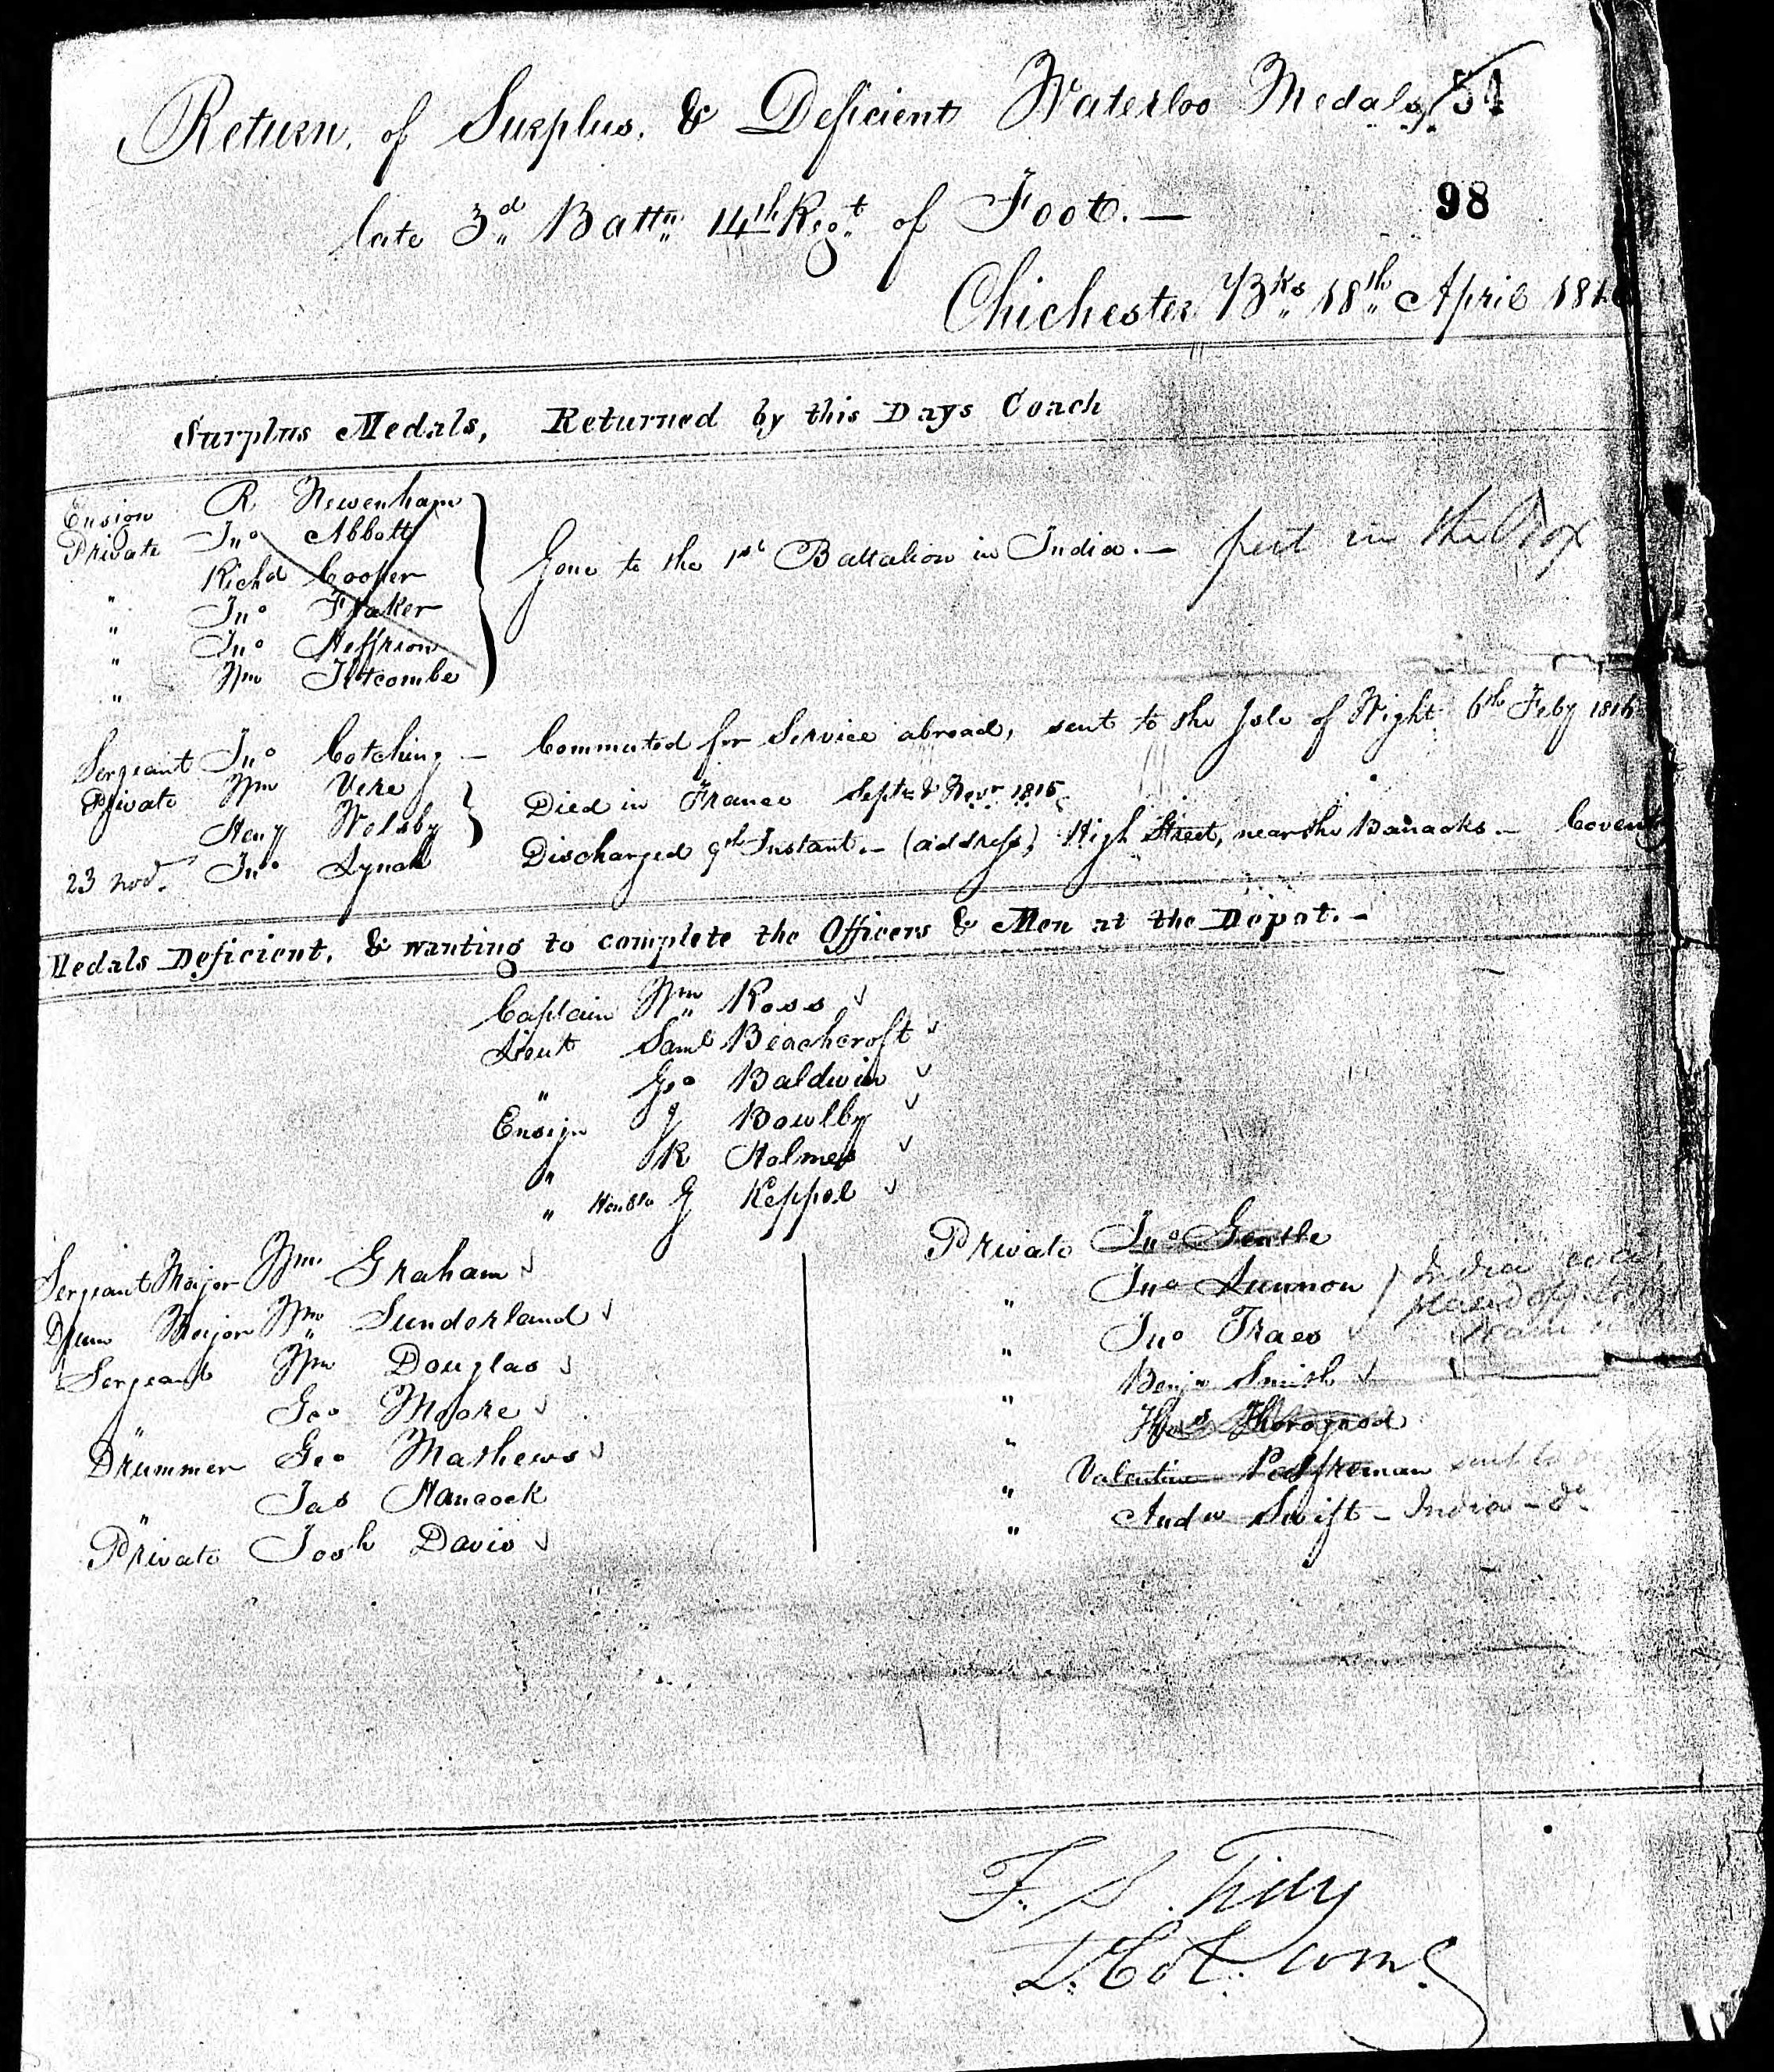 Return, of Surplus, & Deficient Waterloo Medals, 54
late 3d Battn 14th Regt of Foot. — 98
Chichester Bks 18th April 181
Surplus Medals, Returned by this Days Coach
Ensign R Newenham
Private Jno Abbott
" Richd Cooper
" Jno Fraker
" Jno Heffrion
" Wm Titcombe
Gone to the 1st Battalion in India. — put in the Box
Sergeant Jno Cotching — Commuted for Service abroad, sent to the Isle of Wight 6th Feby 1816
Private Wm Vere
Heny Welsby
Died in France Septr & Novr 1815
23 nod. Jno Lynch Discharged 9th Instant. — (address) High Street, near the Barracks. — Covent
Medals Deficient, & wanting to complete the Officers & Men at the Depot. —
Captain Wm Ross
Lieut Saml Beachcroft
" Geo Baldwin
Ensign J Bowlby
" R Holmes
" Honble G Keppel
Sergeant Major Wm Graham
Drum Major Wm Sunderland
Sergeant Wm Douglas
" Geo Moore
Drummer Geo Mathews
" Jas Hancock
Private Josh Davis
Private Jno Gentle
" Jno Lunnon India
" Jno Traes
" Benjn Smith
" Thos Thorogood
" Valentine Pedfreman sent to
" Andw Swift — India — do
F. S. Tidy
Lt. Col. Com.